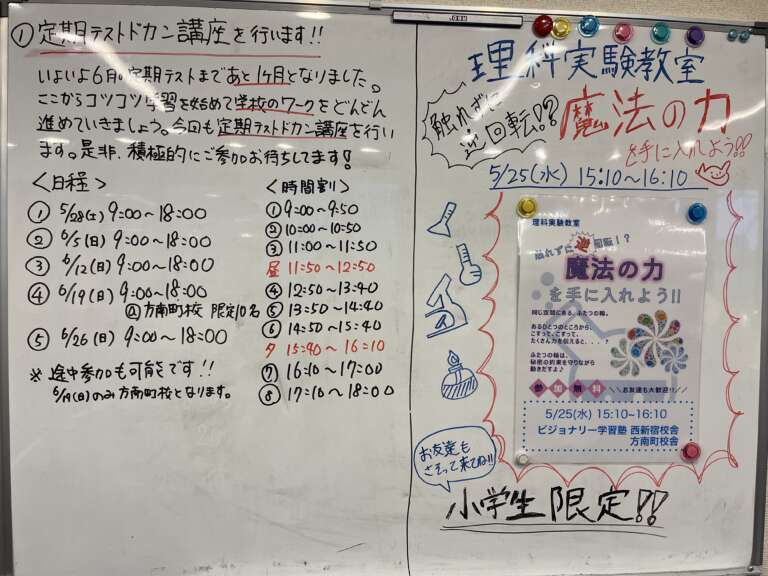 ① 定期テストドカン講座を行います!!
いよいよ6月の定期テストまであと1ヶ月となりました。
ここからコツコツ学習を始めて学校のワークをどんどん
進めていきましょう。今回も定期テストドカン講座を行い
ます。是非、積極的にご参加お待ちしてます!
<日程>
① 5/28(土) 9:00〜18:00
② 6/5(日) 9:00〜18:00
③ 6/12(日) 9:00〜18:00
④ 6/19(日) 9:00〜18:00
方南町校 限定10名
⑤ 6/26(日) 9:00〜18:00
※ 途中参加も可能です!!
6/19(日)のみ方南町校となります。
<時間割>
① 9:00〜9:50
② 10:00〜10:50
③ 11:00〜11:50
昼 11:50〜12:50
④ 12:50〜13:40
⑤ 13:50〜14:40
⑥ 14:50〜15:40
夕 15:40〜16:10
⑦ 16:10〜17:00
⑧ 17:10〜18:00
理科実験教室
触れずに
逆回転!?
魔法の力
を手に入れよう!!
5/25(水) 15:10〜16:10
理科実験教室
触れずに逆回転!?
魔法の力
を手に入れよう!!
同じ空間にある、ふたつの輪。
あるひとつのところから、
こすって、こすって、
たくさん力を伝えると、、、?
ふたつの輪は、
秘密の約束を守りながら
動きだすよ♪
参加無料
\\お友達も大歓迎!!//
5/25(水) 15:10~16:10
ビジョナリー学習塾 西新宿校舎
方南町校舎
お友達も
さそって来てね!!
小学生限定!!